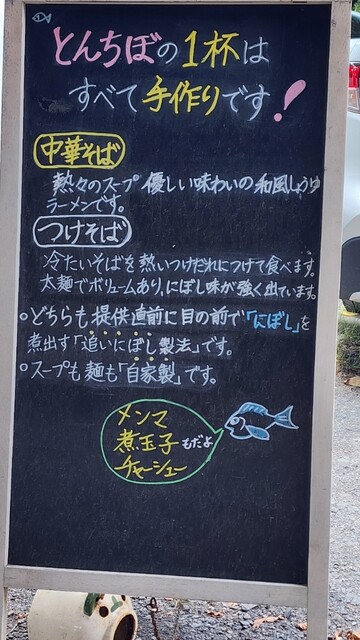 とんちぼの1杯は
すべて手作りです!
中華そば
熱々のスープ 優しい味わいの和風しょうゆ
ラーメンです。
つけそば
冷たいそばを熱いつけだれにつけて食べます。
太麺でボリュームあり、にぼし味が強く出ています。
○どちらも提供直前に目の前で「にぼし」を
煮出す「追いにぼし製法」です。
○スープも麺も「自家製」です。
メンマ
煮玉子もだよ
チャーシュー